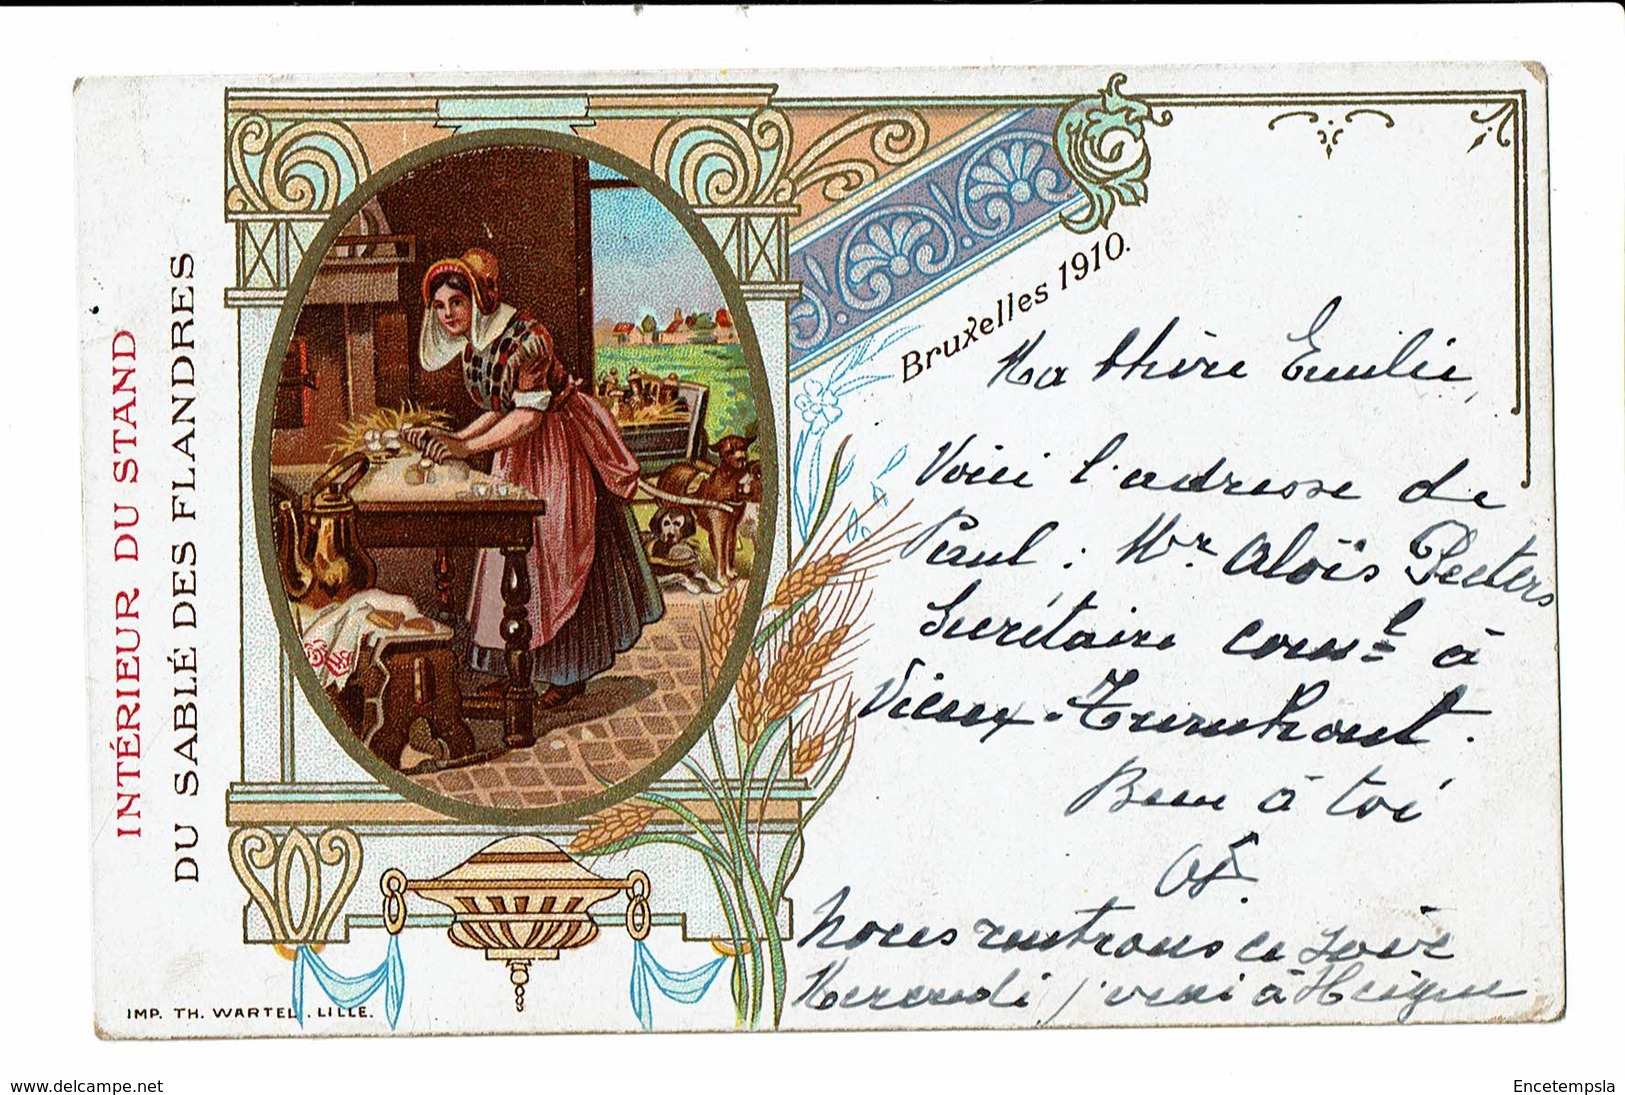 INTÉRIEUR DU STAND
DU SABLÉ DES FLANDRES
Bruxelles 1910.
Ma chère Emilie,
Voici l'adresse de
Paul : Mr Aloïs Peeters
Secrétaire comm.l à
Vieux-Turnhout.
Bien à toi
Nous rentrons ce soir
Mercredi j'irai à
IMP. TH. WARTEL, LILLE.
www.delcampe.net
Encetempsla